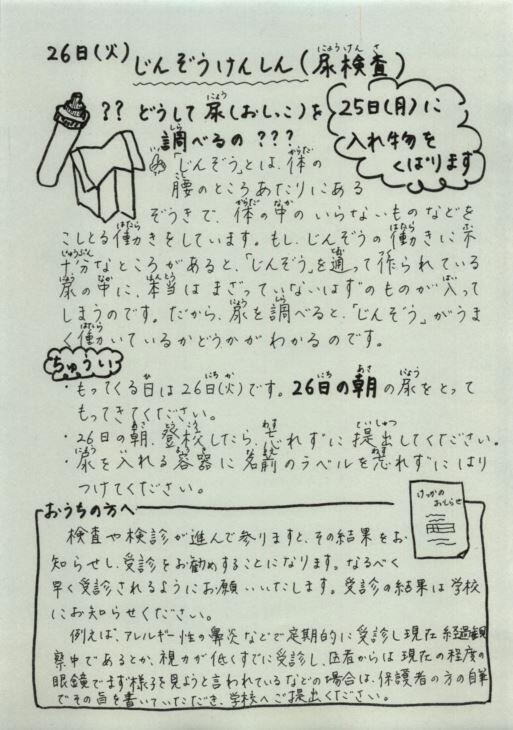 26日(火) じんぞうけんしん(尿検査)
?? どうして尿(おしっこ)を
調べるの???
25日(月)に
入れ物を
くばります
「じんぞう」とは、体の
腰のところあたりにある
ぞうきで、体の中のいらないものなどを
こしとる働きをしています。もし、じんぞうの働きに不
十分なところがあると、「じんぞう」を通って作られている
尿の中に、本当はまざっていないはずのものが入って
しまうのです。だから、尿を調べると、「じんぞう」がうま
く働いているかどうかがわかるのです。
ちゅうい
・もってくる日は26日(火)です。26日の朝の尿をとって
もってきてください。
・26日の朝、登校したら、忘れずに提出してください。
・尿を入れる容器に名前のラベルを忘れずにはり
つけてください。
おうちの方へ
けっかの
おしらせ
検査や検診が進んで参りますと、その結果をお
知らせし、受診をお勧めすることになります。なるべく
早く受診されるようにお願いいたします。受診の結果は学校
にお知らせください。
例えば、アレルギー性の鼻炎などで定期的に受診し現在経過観
察中であるとか、視力が低くすでに受診し、医者からは現在の程度の
眼鏡でまず様子を見ようと言われているなどの場合は、保護者の方の自筆
でその旨を書いていただき、学校へご提出ください。